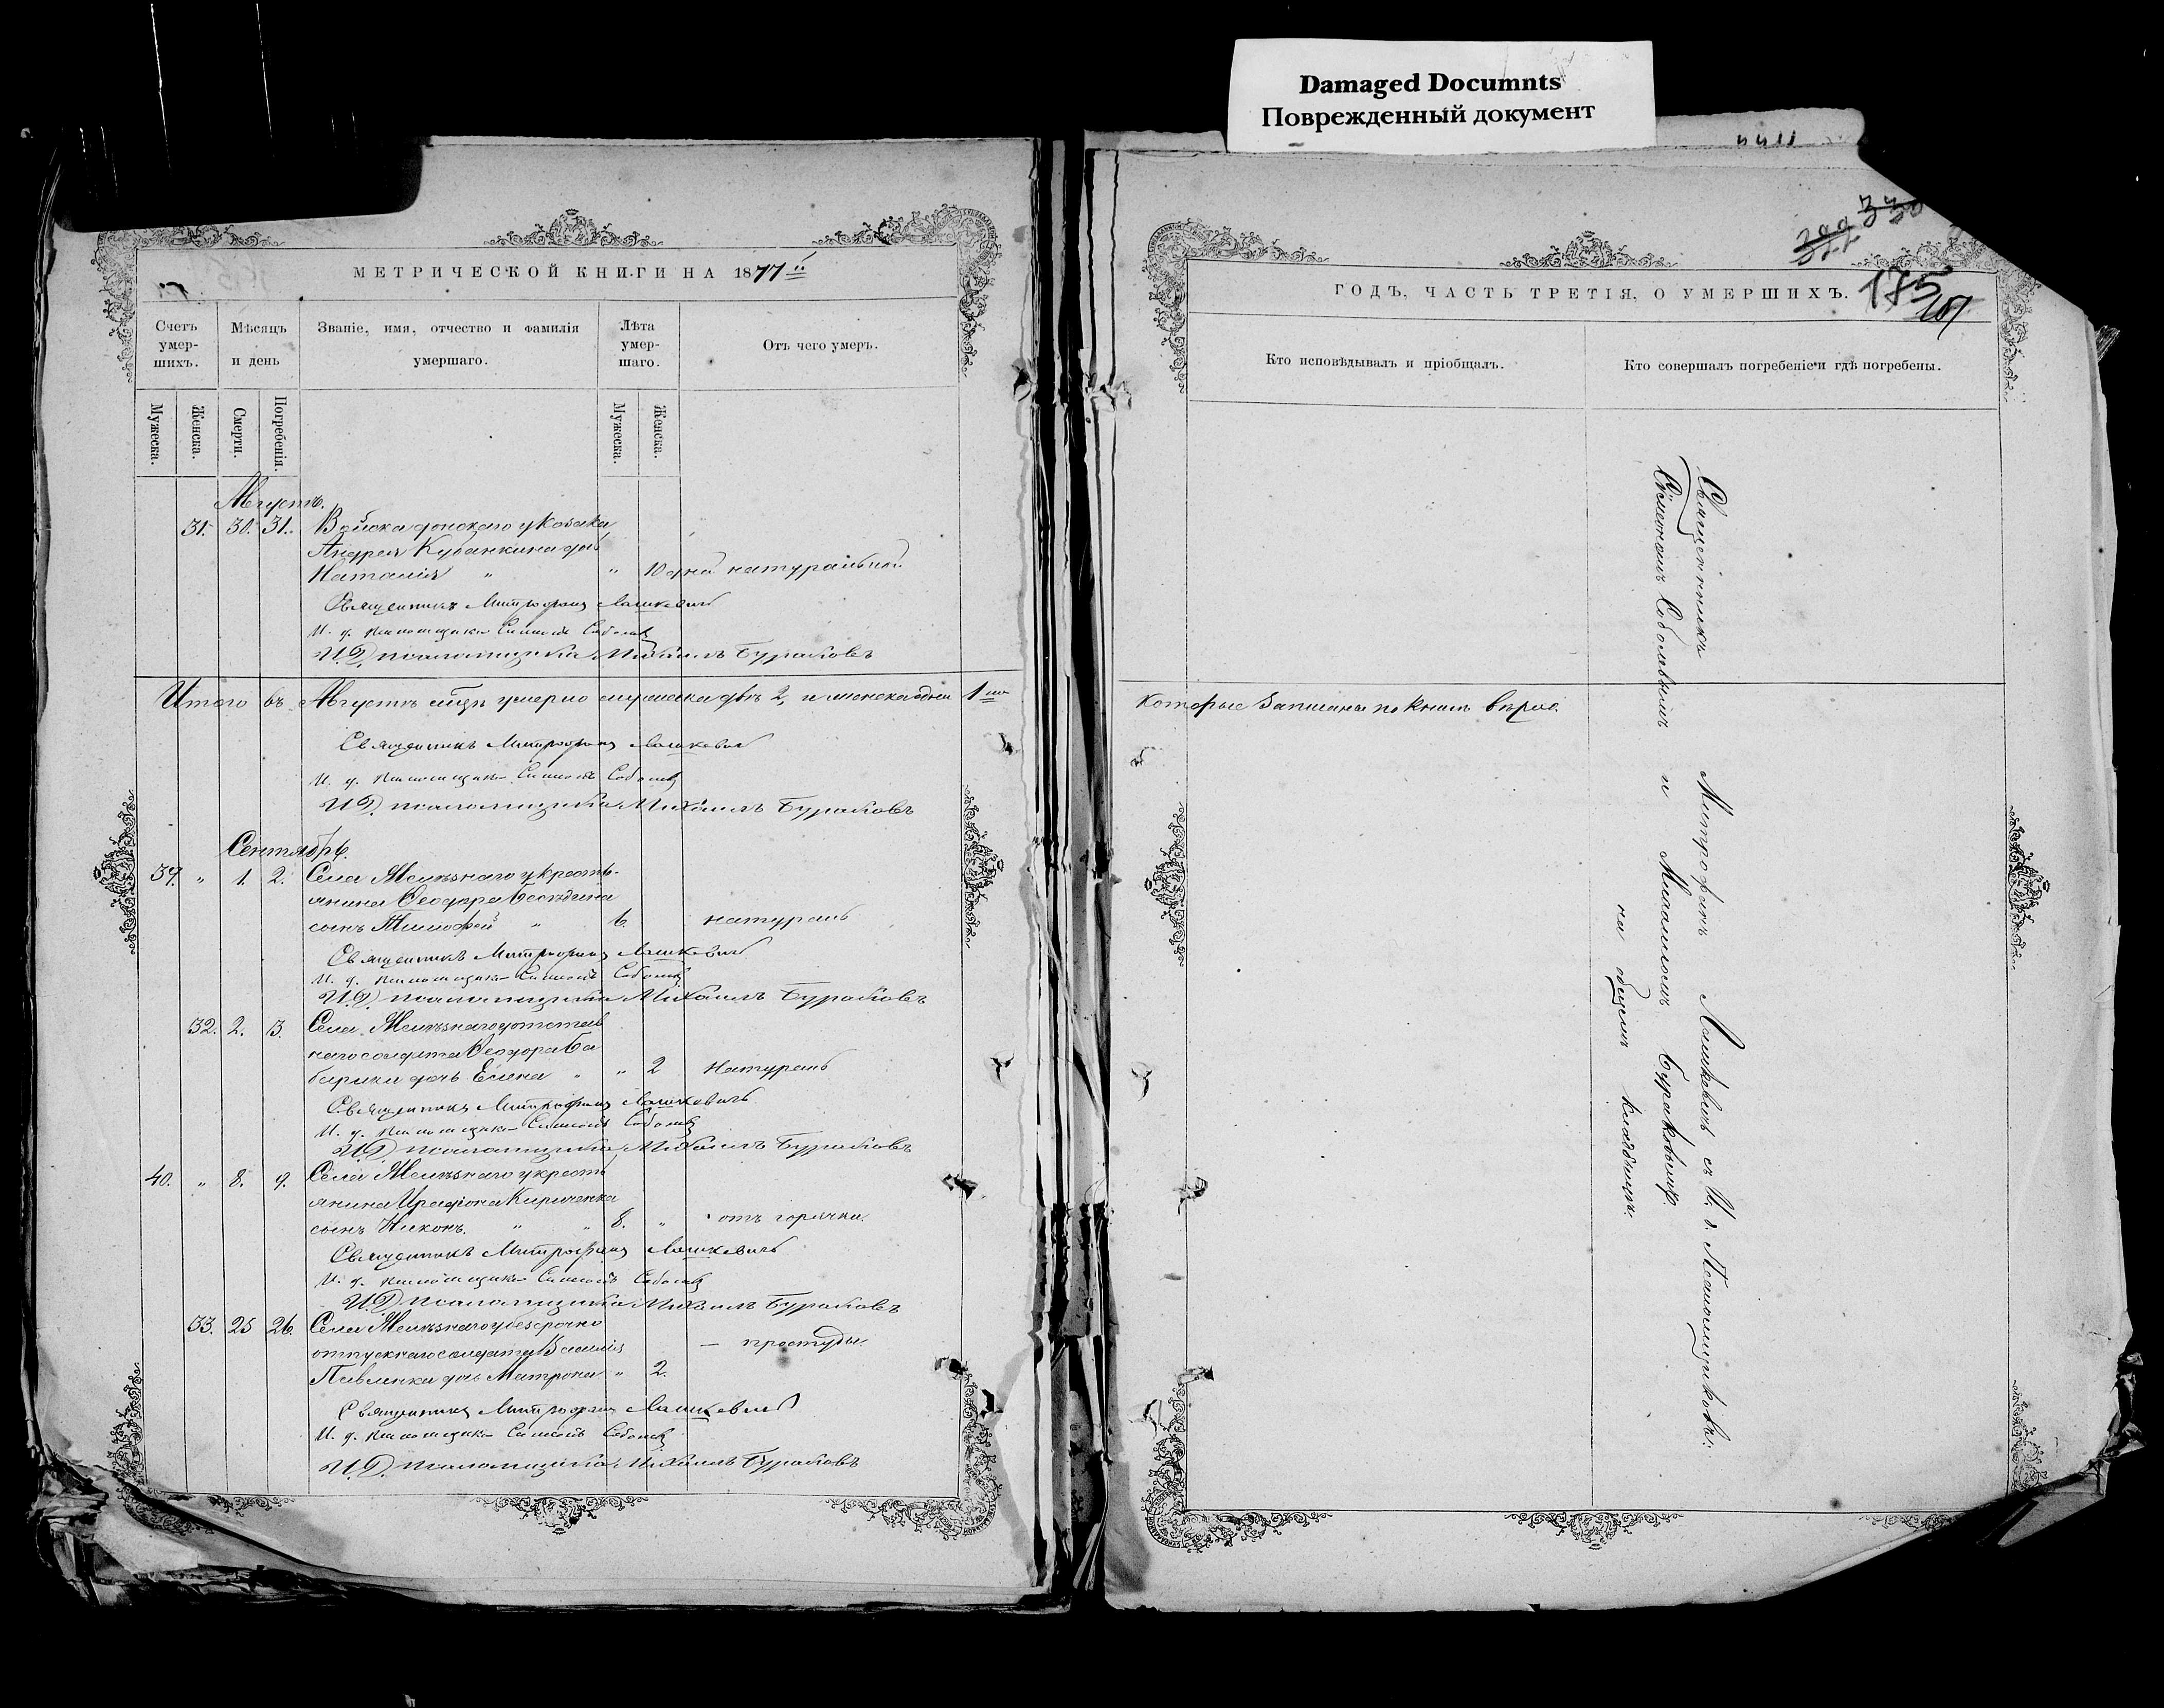 Damaged Documnts
Поврежденный документ
МЕТРИЧЕСКОЙ КНИГИ НА 1877 й
Счетъ умер- шихъ.
Мѣсяцъ и день
Званіе, имя, отчество и фамилія умершаго.
Лѣта умер- шаго.
Отъ чего умеръ.
Мужеска.
Женска.
Смерти.
Погребенія.
Мужеска.
Женска.
Августъ.
31. 30. 31. Войска донскаго у козака
Андрея Кубанкина дочь
Наталія " " 10 дней натуральной.
Священникъ Митрофанъ Лашкевичъ
И. д. псаломщика Симеонъ Соболевъ
И.Д. псаломщика Михаилъ Бураковъ
Итого въ Августѣ мцѣ умерло мужеска двѣ 2, и женска одна 1
Священникъ Митрофанъ Лашкевичъ
И. д. псаломщика Симеонъ Соболевъ
И.Д. псаломщика Михаилъ Бураковъ
Сентябрь.
39. " 1. 2. Села у крестья-
янина Ѳеодора
сынъ Тимофей " 6. натураль
Священникъ Митрофанъ Лашкевичъ
И. д. псаломщика Симеонъ Соболевъ
И.Д. псаломщика Михаилъ Бураковъ
32. 2. 3. Села у отстав
наго солдата Ѳеодора Ба
барики дочь Елена " " 2 Натураль
Священникъ Митрофанъ Лашкевичъ
И. д. псаломщика Симеонъ Соболевъ
И.Д. псаломщика Михаилъ Бураковъ
40. " 8. 9. Села у кресть
янина Кириченка
сынъ Никонъ. " " 8. " отъ горячки.
Священникъ Митрофанъ Лашкевичъ
И. д. псаломщика Симеонъ Соболевъ
И.Д. псаломщика Михаилъ Бураковъ
33. 25 26. Села у безсрочно
отпускнаго солдата Василія — простуды.
Павленка дочь Матрона " 2.
Священникъ Митрофанъ Лашкевичъ
И. д. псаломщика Симеонъ Соболевъ
И.Д. псаломщика Михаилъ Бураковъ
322 330
175
ГОДЪ, ЧАСТЬ ТРЕТІЯ, О УМЕРШИХЪ.
Кто исповѣдывалъ и пріобщалъ.
Кто совершалъ погребеніе и гдѣ погребены.
которые записаны по книгѣ вѣрно.
Священникъ Митрофанъ Лашкевичъ съ И. д. Псаломщиковъ:
Симеономъ Соболевымъ и Михаиломъ Бураковымъ.
на общемъ кладбищѣ.